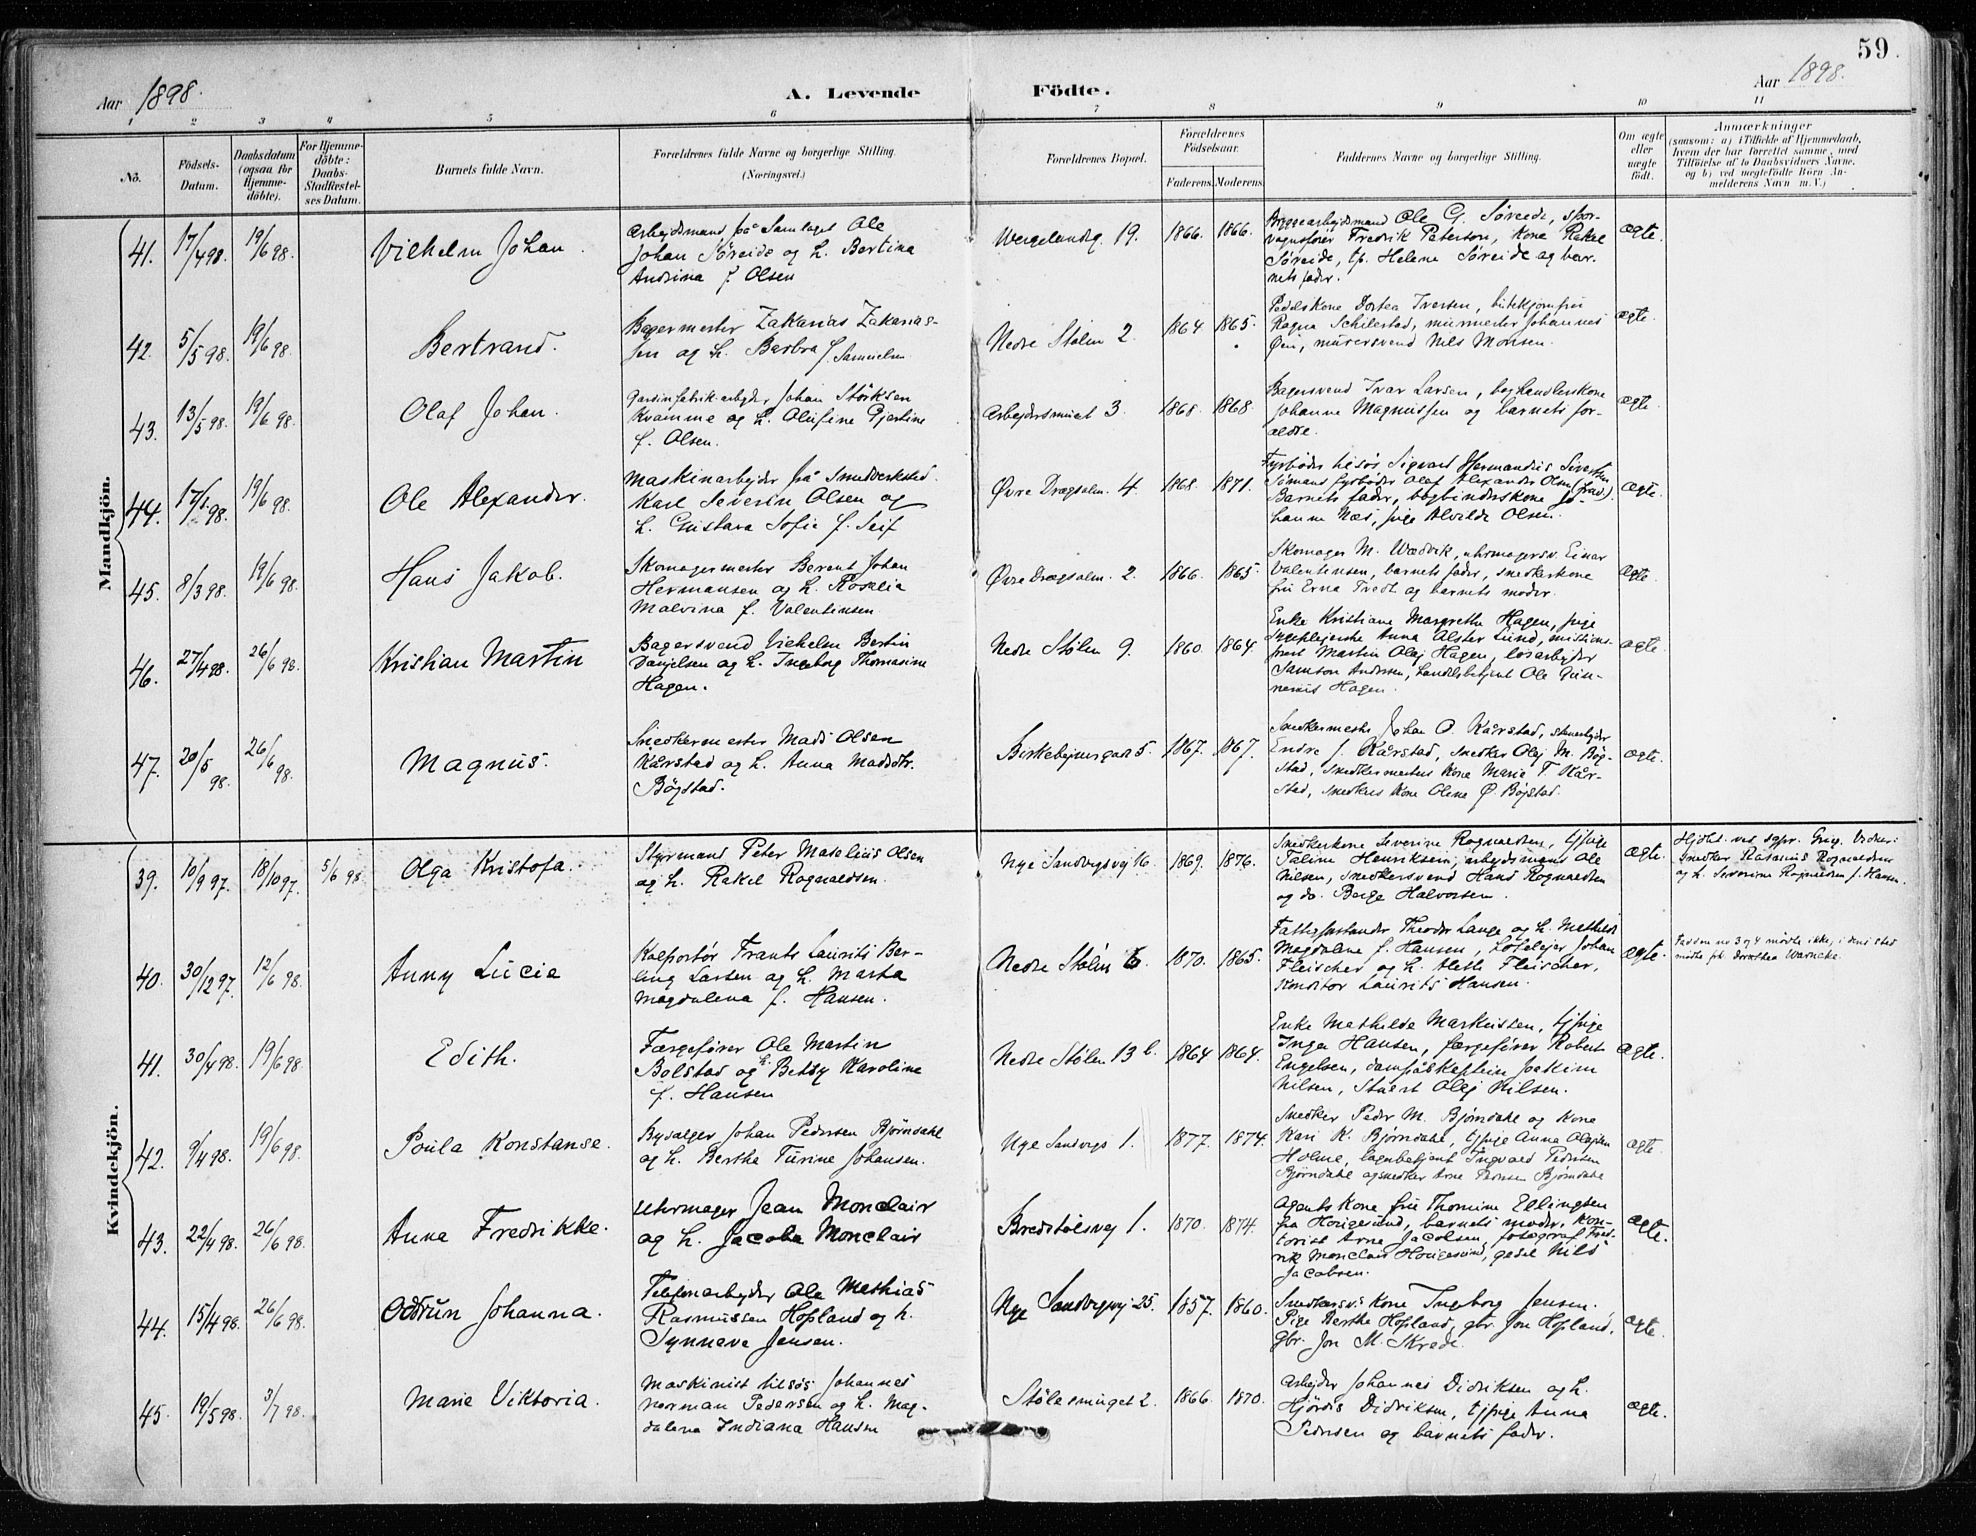 59.
Aar 1898.
A. Levende Födte.
Aar 1898.
1 2 3 4 5 6 7 8 9 10 11
No.
Födsels-Datum.
Daabsdatum (ogsaa for Hjemme-döbte).
For Hjemme-döbte: Daabs-Stadfæstel-ses Datum.
Barnets fulde Navn.
Forældrenes fulde Navne og borgerlige Stilling.
(Næringsvei.)
Forældrenes Bopæl.
Forældrenes Födselsaar.
Faderens. Moderens.
Faddernes Navne og borgerlige Stilling.
Om ægte eller uægte födt.
Anmærkninger
(saasom: a) i Tilfælde af Hjemmedaab, hvem der har forrettet samme, med Tilföielse af to Daabsvidners Navne, og b) ved uægtefödte Börn An-melderens Navn m. V.)
Mandkjön.
41. 17/4 98. 19/6 98. Vilhelm Johan.
Arbeidsmand på Samlaget Ole
Johan Søreide og h. Bertina
Andrina f. Olsen
Wergelandsg. 19. 1866. 1866.
Bryggearbejdsmand Ole G. Søreide, spor-
vognsfører Fredrik Peterson, kone Rakel
Søreide, tp. Helene Søreide og bar-
nets fader.
ægte.
42. 5/5 98. 19/6 98. Bertrand.
Bagermester Zakarias Zakarias-
sen og h. Barbra f. Samuelsen
Nedre Stølen 2. 1864. 1865.
Pedelskone Dortea Iversen, butikjomfru
Ragna Schilestad, murmester Johannes
Øen, murersvend Nils Monsen.
ægte.
43. 13/5 98. 19/6 98. Olaf Johan.
Gardinfabrik-arbejder Johan Størksen
Kvamme og h. Olufine Gjertine
f. Olsen.
Arbejdersmuet 3. 1868. 1868.
Bagersvend Ivar Larsen, boghandlerskone
Johanne Magnussen og barnets for-
ældre.
ægte.
44. 98. 19/6 98. Ole Alexander.
Maskinarbejder på Smedverksted
Karl Severin Olsen og
h. Gustava Sofie f. Seif
Øvre Dragsalm. 4. 1868. 1871.
Fyrbøder tilsøs Sigvard Hermandus Sivertsen
Sømans fyrbøder Olaf Alexander Olsen
Barnets fader, bogbinderskone Jo-
hanne Næs, pige Alvilde Olsen.
ægte.
45. 8/3 98. 19/6 98. Hans Jakob.
Skomagermester Berent Johan
Hermansen og h. Rosalia
Malvina f. Valentinsen.
Øvre Dragsalm. 2. 1866. 1865.
Skomager M. Wædvik, uhrmagersv. Einar
Valentinsen, barnets fader, snedkerkone
fru Erna Tvedt og barnets moder.
ægte.
46. 27/4 98. 26/6 98. Kristian Martin
Bagersvend Vilhelm Bertin
Danjelsen og h. Ingeborg Thomasine
Hagen.
Nedre Stølen 9. 1860. 1864.
Enke Kristiane Margrethe Hagen, pige
Anna Alster Lund, missions-
prest Martin Olaj Hagen, løsarbejder
Samson Andersen, handelsbetjent Ole Gun-
nerius Hagen.
ægte.
47. 20/5 98. 26/6 98. Magnus.
Snedkermester Mads Olsen
Kårstad og h. Anna Madsdtr.
Bøgstad.
Birkebejnergaden 5. 1867. 1867.
Snedkermester Johan O. Kårstad, stenarbejder
Endre J. Kårstad, snedker Olaj M. Bøg-
stad, snedkermesters kone Marie T. Kår-
stad, snedkers kone Oline Ø. Bøgstad.
ægte.
Kvindekjön.
39. 10/9 97. 18/10 97. 5/6 98. Olga Kristofa.
Styrmand Peter Maselius Olsen
og h. Rakel Rognaldsen.
Nye Sandvigsvej 16. 1869. 1876.
Snedkerkone Severine Rognaldsen, tjpige
Taline Henriksen, arbejdsmand Ole
Nilsen, snedkersvend Hans Rognaldsen
og do. Berge Halvorsen.
ægte.
Hjdbt. ved sgpr. Grieg. Vidner:
Snedker Rasmus Rognaldsen
og h. Severine Rognaldsen f. Hansen.
40. 30/12 97. 12/6 98. Anny Lucie
Kolportør Frants Laurits Ber-
ling Larsen og h. Marta
Magdalena f. Hansen.
Nedre Stølen 6. 1870. 1865.
Fattigforstander Theodor Lange og h. Mathilde
Magdalene f. Hansen, Johan
Fleischer og h. Alette Fleischer,
Konditor Laurits Hansen.
ægte.
Faddern nr 3 og 4 mødte ikke, i deres sted
mødte frk. Dorothea Warncke.
41. 30/4 98. 19/6 98. Edith.
Færgefører Ole Martin
Bolstad og h. Betsy Karoline
f. Hansen
Nedre Stølen 13 b. 1864. 1864.
Enke Mathilde Markusten, tjpige
Inga Hansen, færgefører Robert
Engelsen, dampskibskaptein Joakim
Nilsen, Stuert Olaj Nilsen.
ægte.
42. 9/4 98. 19/6 98. Poula Konstanse.
Bysælger Johan Pedersen Bjørndahl
og h. Berthe Turine Johansen.
Nye Sandvigs 1. 1877. 1874.
Snedker Peder M. Bjørndahl og kone
Kari K. Bjørndahl, tjpige Anna Olajsen
Holme, lagerbetjent Ingvald Pedersen
Bjørndahl og snedker Arne Pedersen Bjørndahl
ægte.
43. 22/4 98. 26/6 98. Anna Fredrikke.
Uhrmager Jean Monclair
og h. Jacoba Monclair
Bredstølsvej 1. 1870. 1874.
Agents kone fru Thomine Ellingsen
fra Hougesund, barnets moder, kon-
torist Arne Jacobsen, fotograf Fred-
rik Monclair Hougesund, gasel Nils
Jacobsen.
ægte.
44. 15/4 98. 26/6 98. Oddrun Johanna.
Telefonarbejder Ole Mathias
Rasmussen Hopland og h.
Synneve Jensen.
Nye Sandvigsvej 25. 1857. 1860.
Snedkersv. kone Ingeborg Jensen.
Pige Berthe Hopland, gbr. Jon Hopland,
gbr. Jon M. Skrede.
ægte.
45. 19/5 98. 3/7 98. Marie Viktoria.
Maskinist tilsøs Johannes
Norman Pedersen og h. Mag-
dalena Indiana Hansen
Stølesmuget 2. 1866. 1870.
Arbejder Johannes Didriksen og h.
Hjørdis Didriksen, tjpige Anna
Pedersen og barnets fader.
ægte.